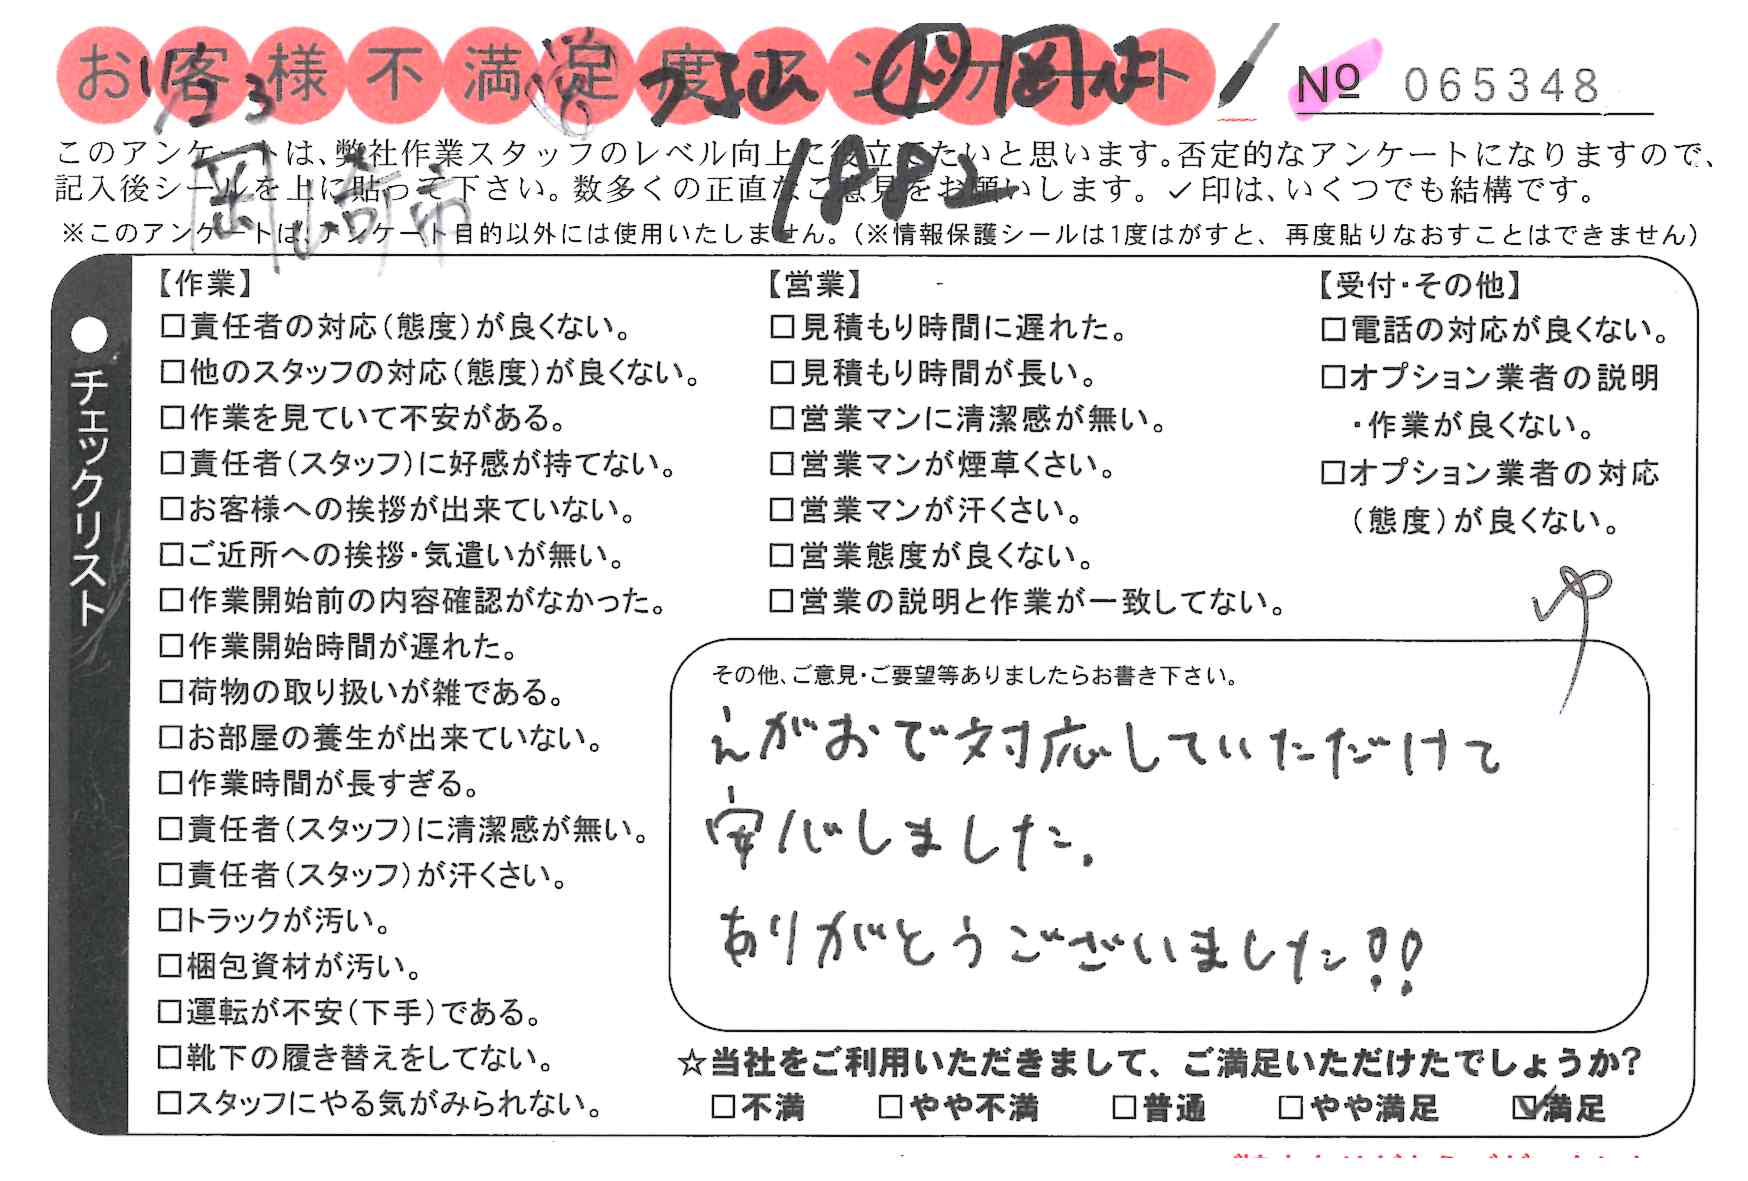 お客様不満足度アンケート
№ 065348
11/23
岡崎市
1882
このアンケートは、弊社作業スタッフのレベル向上に役立てたいと思います。否定的なアンケートになりますので、
記入後シールを上に貼って下さい。数多くの正直なご意見をお願いします。✓印は、いくつでも結構です。
※このアンケートは、アンケート目的以外には使用いたしません。(※情報保護シールは1度はがすと、再度貼りなおすことはできません)
●チェックリスト
【作業】
□責任者の対応(態度)が良くない。
□他のスタッフの対応(態度)が良くない。
□作業を見ていて不安がある。
□責任者(スタッフ)に好感が持てない。
□お客様への挨拶が出来ていない。
□ご近所への挨拶・気遣いが無い。
□作業開始前の内容確認がなかった。
□作業開始時間が遅れた。
□荷物の取り扱いが雑である。
□お部屋の養生が出来ていない。
□作業時間が長すぎる。
□責任者(スタッフ)に清潔感が無い。
□責任者(スタッフ)が汗くさい。
□トラックが汚い。
□梱包資材が汚い。
□運転が不安(下手)である。
□靴下の履き替えをしてない。
□スタッフにやる気がみられない。
【営業】
□見積もり時間に遅れた。
□見積もり時間が長い。
□営業マンに清潔感が無い。
□営業マンが煙草くさい。
□営業マンが汗くさい。
□営業態度が良くない。
□営業の説明と作業が一致してない。
【受付・その他】
□電話の対応が良くない。
□オプション業者の説明
・作業が良くない。
□オプション業者の対応
(態度)が良くない。
その他、ご意見・ご要望等ありましたらお書き下さい。
えがおで対応していただけて
安心しました。
ありがとうございました!!
☆当社をご利用いただきまして、ご満足いただけたでしょうか?
□不満 □やや不満 □普通 □やや満足 ☑満足